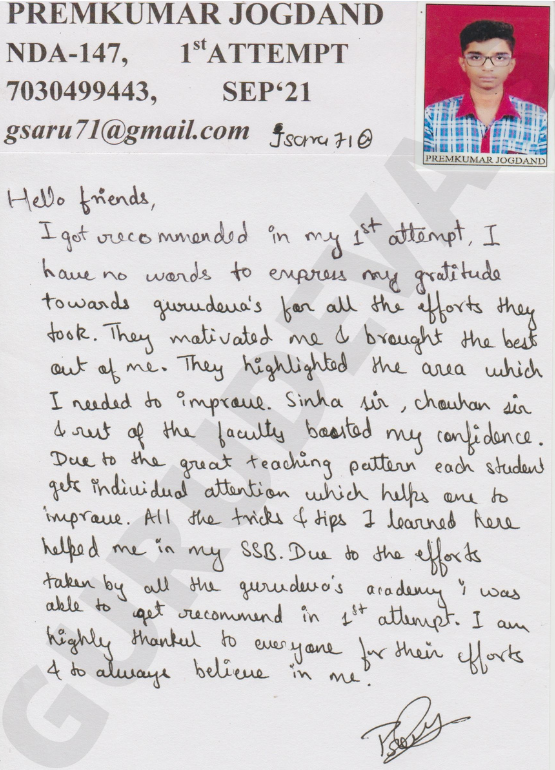 PREMKUMAR JOGDAND
NDA-147, 1st ATTEMPT
7030499443, SEP'21
gsaru71@gmail.com gsaru71@
PREMKUMAR JOGDAND
Hello friends,
I got recommended in my 1st attempt, I
have no words to express my gratitude
towards gurudeva's for all the efforts they
took. They motivated me & brought the best
out of me. They highlighted the area which
I needed to improve. Sinha sir, chouhan sir
& rest of the faculty boosted my confidence.
Due to the great teaching pattern each student
gets individual attention which helps one to
improve. All the tricks & tips I learned here
helped me in my SSB. Due to the efforts
taken by all the gurudeva's academy i was
able to get recommend in 1st attempt. I am
highly thankul to everyone for their efforts
& to always believe in me.
GURUDEVA